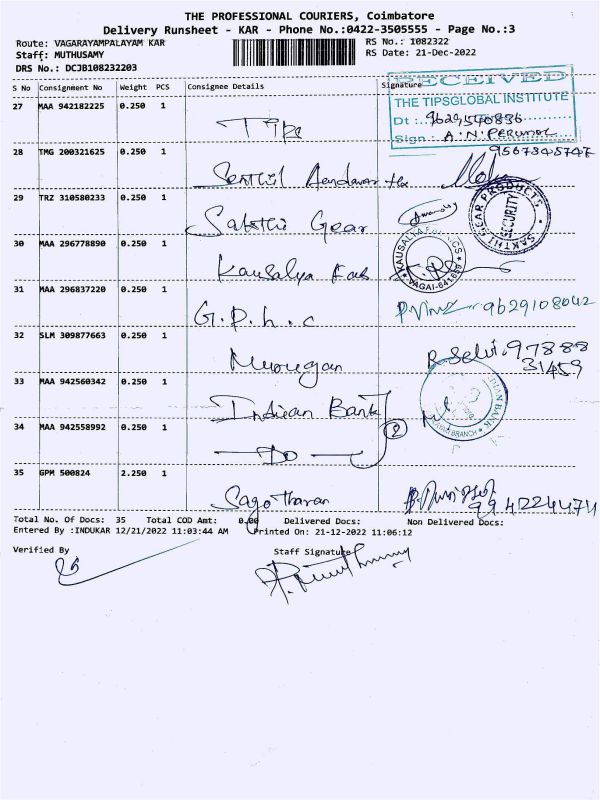 THE PROFESSIONAL COURIERS, Coimbatore
Delivery Runsheet - KAR - Phone No.:0422-3505555 - Page No.:3
Route: VAGARAYAMPALAYAM KAR
RS No.: 1082322
Staff: MUTHUSAMY
RS Date: 21-Dec-2022
DRS No.: DCJB108232203
S No Consignment No Weight PCS Consignee Details Signature
RECEIVED
THE TIPSGLOBAL INSTITUTE
27 MAA 942182225 0.250 1 Tips
Dt : 9629540836
Sign : A.N. PERUMAL
9567345747
28 TMG 200321625 0.250 1 Senthil
29 TRZ 310580233 0.250 1 Sakthi Gear
SAKTHI GEAR PRODUCTS
SECURITY
30 MAA 296778890 0.250 1 Kausalya Fab
VAGAI-641659
31 MAA 296837220 0.250 1 G.P.h.c
9629108042
32 SLM 309877663 0.250 1 Murugan
R. Selvi. 97888
31459
33 MAA 942560342 0.250 1 Indian Bank
INDIAN BANK
BRANCH
34 MAA 942558992 0.250 1 Do 2
35 GPM 500824 2.250 1 Sago Tharan
9942244711
Total No. Of Docs: 35 Total COD Amt: 0.00 Delivered Docs: Non Delivered Docs:
Entered By :INDUKAR 12/21/2022 11:03:44 AM Printed On: 21-12-2022 11:06:12
Verified By Staff Signature